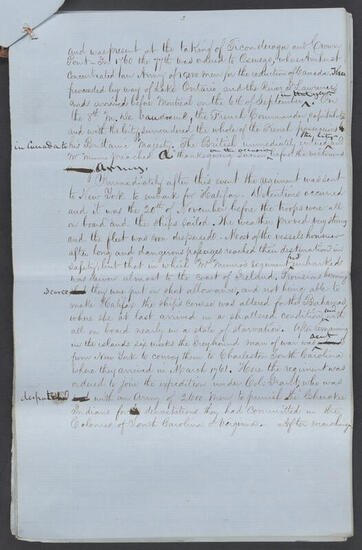 and was present at the taking of Ticonderoga and Crown
Point - In 1760 the 77th was ordered to Oswego, where Amherst
Concentrated an Army of 10,000 men for the reduction of Canada. They
proceeded by way of Lake Ontario and the River St Lawrence
and arrived before Montreal on the 6th of September. On
the 8th M. de Vaudreuil, the French Commander, capitulated
and with the city surrendered the whole of the French possessions
in Canada to his Brittanic Majesty. The British immediately entered the City
Mr Munro preached a thanksgiving sermon to the victorious
Army.
Immediately after this event the regiment was sent
to New York to embark for Halifax. Detentions occurred
and it was the 20th of November before the troops were all
on board and the ships sailed. The weather proved very stormy
and the fleet was soon dispersed. Most of the vessels however
after long and dangerous passages reached their destination in
safety; but that in which Mr Munros regiment had embarked
was driven almost to the coast of Ireland. Provisions having
become scarce they were put on short allowance, and not being able to
make Halifax the ships course was altered for the Bahamas
where she at last arrived in a shattered condition with
all on board nearly in a state of starvation. After remaining
in the islands six weeks the Greyhound man of war was sent
from New York to convey them to Charleston South Carolina
where they arrived in March 1761. Here the regiment was
ordered to join the expedition under Col. Grant, who was
despatched with an Army of 2600 men to punish the Cherokee
Indians for devastations they had committed in the
Colonies of South Carolina & Virginia. After marching